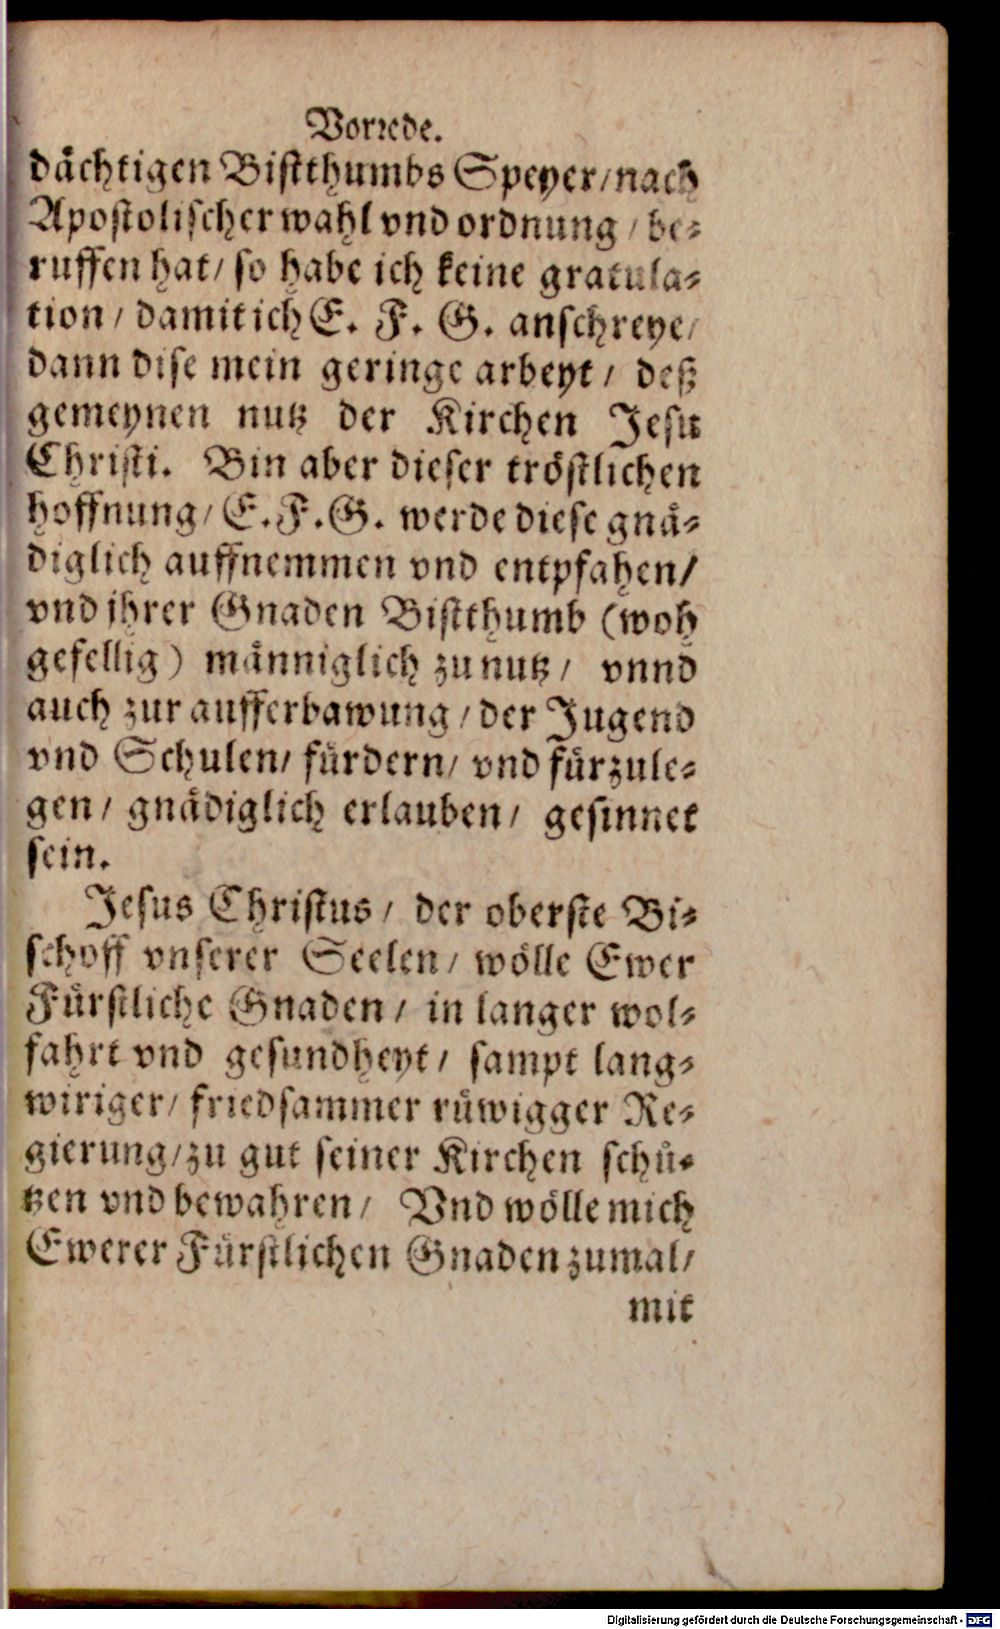 Vorrede.
dächtigen Bistthumbs Speyer/nach
Apostolischer wahl vnd ordnung / be⸗
ruffen hat/ so habe ich keine gratula⸗
tion / damit ich E. F. G. anschreye/
dann dise mein geringe arbeyt / deß
gemeynen nutz der Kirchen Jesu
Christi. Bin aber dieser tröstlichen
hoffnung/ E.F.G. werde diese gnä⸗
diglich auffnemmen vnd entpfahen/
vnd jhrer Gnaden Bistthumb (woh
gefellig) männiglich zu nutz / vnnd
auch zur aufferbawung / der Jugend
vnd Schulen/ fürdern/ vnd fürzule⸗
gen / gnädiglich erlauben / gesinnet
sein.
Jesus Christus / der oberste Bi⸗
schoff vnserer Seelen / wölle Ewer
Fürstliche Gnaden / in langer wol⸗
fahrt vnd gesundheyt / sampt lang⸗
wiriger/ friedsammer rüwigger Re⸗
gierung/zu gut seiner Kirchen schü⸗
tzen vnd bewahren / Vnd wölle mich
Ewerer Fürstlichen Gnaden zumal/
mit
Digitalisierung gefördert durch die Deutsche Forschungsgemeinschaft - DFG